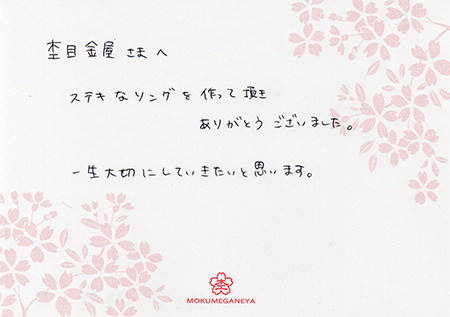 杢目金屋 さまへ
ステキなリングを作って頂き
ありがとうございました。
一生大切にしていきたいと思います。
杢
MOKUMEGANEYA